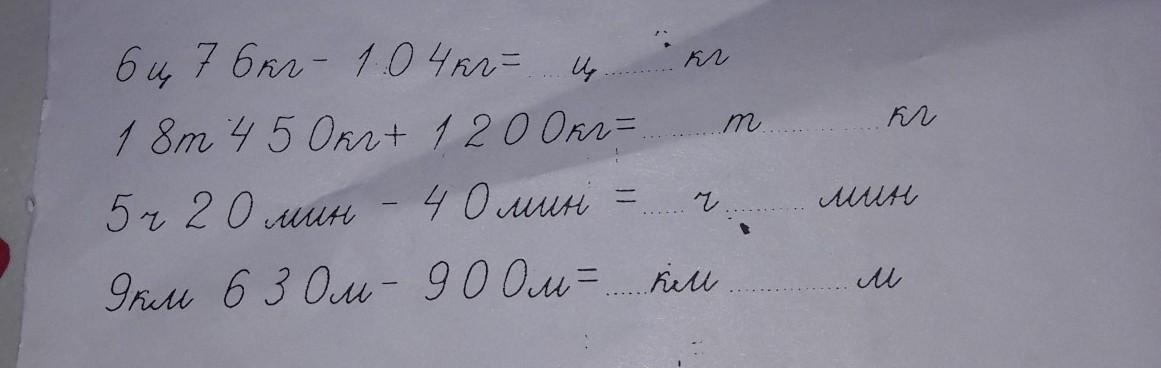 6ц 76кг - 104кг = ...ц........кг
18т 450кг + 1200кг = ........т............кг
5ч 20мин - 40мин = .....ч........мин
9км 630м - 900м = .....км............м